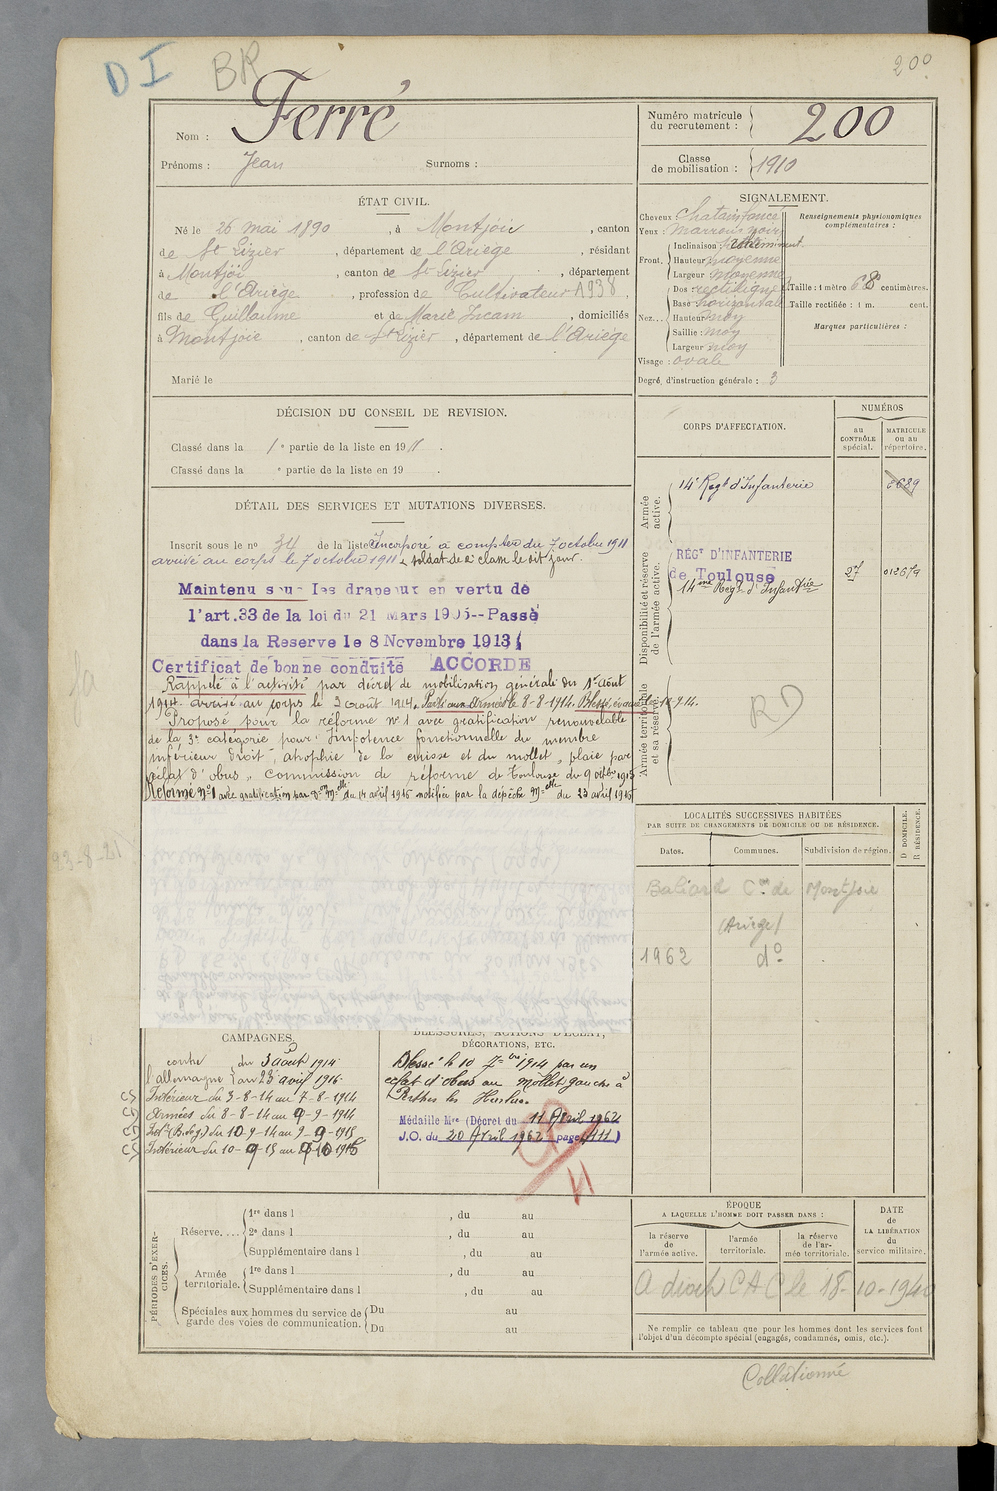 DI BR
200
Nom : Ferré
Prénoms : Jean Surnoms :
Numéro matricule du recrutement : 200
Classe de mobilisation : 1910
ÉTAT CIVIL.
Né le 26 mai 1890, à Montjoie, canton
de St Lizier, département de l'Ariège, résidant
à Montjoi, canton de St Lizier, département
de l'Ariège, profession de Cultivateur 1938,
fils de Guillaume et de Marie Incam, domiciliés
à Montjoie, canton de St Lizier, département de l'Ariège
Marié le
SIGNALEMENT.
Cheveux : chatain foncé
Yeux : marrons noirs
Front, Inclinaison :
Hauteur moyenne
Largeur moyenne
Nez... Dos rectiligne
Base horizontal
Hauteur moy
Saillie : moy
Largeur moy
Visage : ovale
Degré d'instruction générale : 3
Renseignements physionomiques complémentaires :
Taille : 1 mètre 68 centimètres.
Taille rectifiée : 1 m. cent.
Marques particulières :
DÉCISION DU CONSEIL DE REVISION.
Classé dans la 1e partie de la liste en 1911.
Classé dans la e partie de la liste en 19 .
DÉTAIL DES SERVICES ET MUTATIONS DIVERSES.
Inscrit sous le no 34 de la liste Incorporé à compter du 7 octobre 1911
arrivé au corps le 7 octobre 1911 & soldat de 2e classe le dit jour.
Maintenu sous les drapeaux en vertu de
l'art. 33 de la loi du 21 Mars 1905--Passé
dans la Reserve le 8 Novembre 1913
Certificat de bonne conduite ACCORDE
Rappelé à l'activité par décret de mobilisation générale du 1er Août
1914. arrivé au corps le 3 août 1914. Parti aux Armées le 8-8-1914. Blessé, évacué le 10-9-14.
Proposé pour la réforme no 1 avec gratification renouvelable
de la 3e catégorie pour : Impotence fonctionnelle du membre
inférieur droit, atrophie de la cuisse et du mollet, plaie par
éclat d'obus, commission de réforme de Toulouse du 9 octbre 1915
Réformé no 1 avec gratification par Don Mlle du 14 avril 1916 notifiée par la dépêche Mlle du 23 avril 1916
CORPS D'AFFECTATION.
NUMÉROS
au CONTRÔLE spécial.
MATRICULE ou au répertoire.
Armée active.
14e Regt d'Infanterie 6689
Disponibilité et réserve de l'armée active.
RÉGt D'INFANTERIE
de Toulouse
14me Regt d'Infantrie 27 012679
Armée territoriale et sa réserve.
RD
LOCALITÉS SUCCESSIVES HABITÉES
PAR SUITE DE CHANGEMENTS DE DOMICILE OU DE RÉSIDENCE.
Dates. Communes. Subdivision de région. D DOMICILE. R RÉSIDENCE.
Baliard Cne de Montjoie
(Ariège)
1962 do
23-8-21
CAMPAGNES
contre l'allemagne du 3 août 1914
au 23 avril 1916
CS Intérieur du 3-8-14 au 7-8-1914
CD Armées du 8-8-14 au 9-9-1914
Int.r (B. de g.) du 10-9-14 au 9-9-1915
CS Intérieur du 10-9-15 au
BLESSURES, ACTIONS D'ÉCLAT, DÉCORATIONS, ETC.
Blessé le 10 7bre 1914 par un
éclat d'obus au mollet gauche à
Perthes les Hurlus.
Médaille Mre (Décret du 11 Avril 1962
J.O. du 20 Avril 1962 page 4111)
PÉRIODES D'EXERCICES.
Réserve.... 1re dans l , du au
2e dans l , du au
Supplémentaire dans l , du au
Armée territoriale. 1re dans l , du au
Supplémentaire dans l , du au
Spéciales aux hommes du service de garde des voies de communication. Du au
Du au
ÉPOQUE
A LAQUELLE L'HOMME DOIT PASSER DANS :
la réserve de l'armée active.
l'armée territoriale.
la réserve de l'armée territoriale.
DATE de LA LIBÉRATION du service militaire.
A droit CAC le 18-10-1940
Ne remplir ce tableau que pour les hommes dont les services font
l'objet d'un décompte spécial (engagés, condamnés, omis, etc.).
Collationné